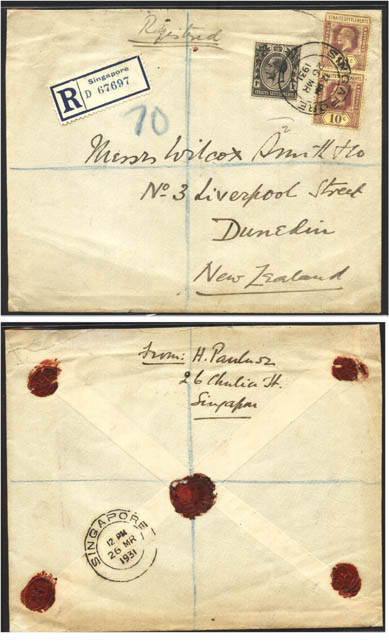 Registered
STRAITS SETTLEMENTS
STRAITS SETTLEMENTS
10 c
SINGAPORE
26 MR
1931
R
Singapore
D 67697
70
Messrs Wilcox Smith & Co
No 3 Liverpool Street
Dunedin
New Zealand
From: H.
26 Chulia St.
Singapore
SINGAPORE
12 PM
26 MR
1931